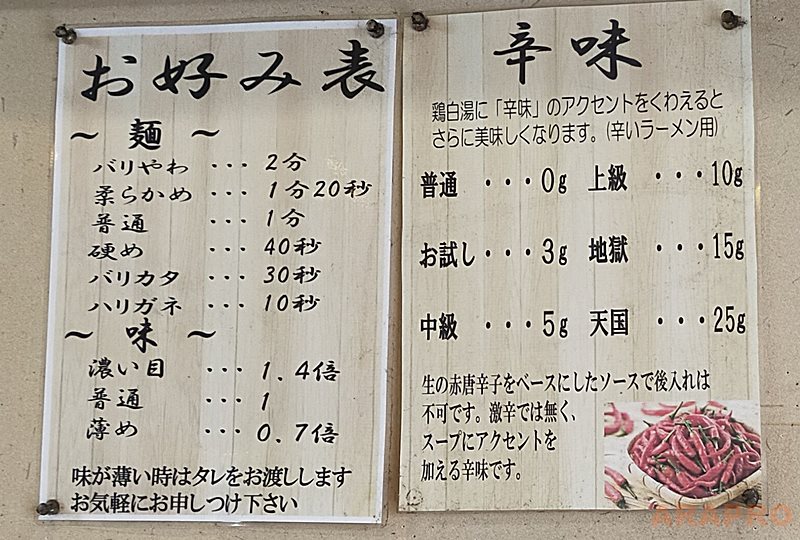 お好み表
～ 麺 ～
バリやわ ・・・ 2分
柔らかめ ・・・ 1分20秒
普通 ・・・ 1分
硬め ・・・ 40秒
バリカタ ・・・ 30秒
ハリガネ ・・・ 10秒
～ 味 ～
濃い目 ・・・ 1.4倍
普通 ・・・ 1
薄め ・・・ 0.7倍
味が薄い時はタレをお渡しします
お気軽にお申しつけ下さい
辛味
鶏白湯に「辛味」のアクセントをくわえると
さらに美味しくなります。(辛いラーメン用)
普通 ・・・0g 上級 ・・・10g
お試し・・・3g 地獄 ・・・15g
中級 ・・・5g 天国 ・・・25g
生の赤唐辛子をベースにしたソースで後入れは
不可です。激辛では無く、
スープにアクセントを
加える辛味です。
ARAPRO